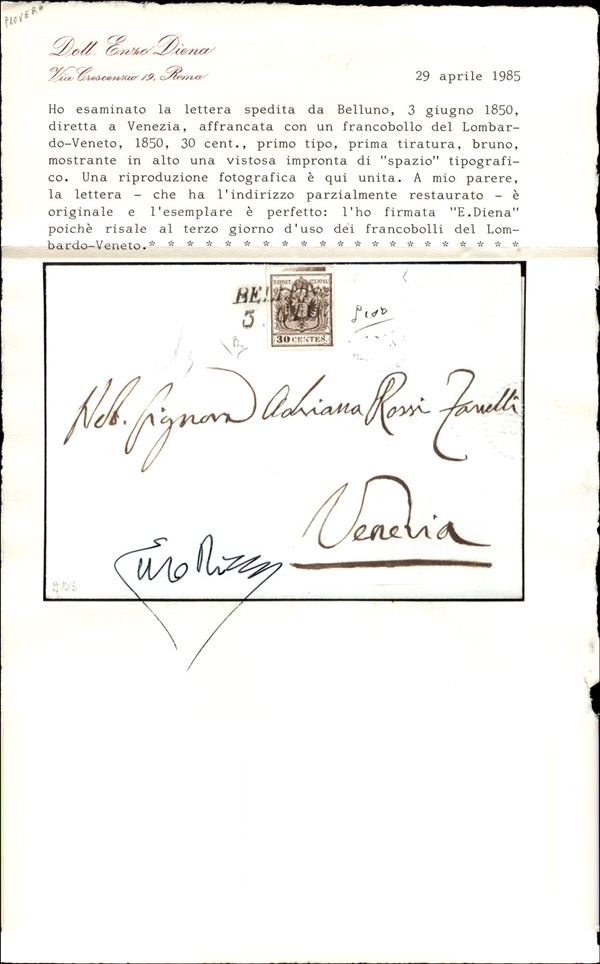 PROVERA
Dott. Enzo Diena
Via Crescenzio 19, Roma
29 aprile 1985
Ho esaminato la lettera spedita da Belluno, 3 giugno 1850,
diretta a Venezia, affrancata con un francobollo del Lombar-
do-Veneto, 1850, 30 cent., primo tipo, prima tiratura, bruno,
mostrante in alto una vistosa impronta di "spazio" tipografi-
co. Una riproduzione fotografica è qui unita. A mio parere,
la lettera - che ha l'indirizzo parzialmente restaurato - è
originale e l'esemplare è perfetto: l'ho firmata "E.Diena"
poichè risale al terzo giorno d'uso dei francobolli del Lom-
bardo-Veneto.* * * * * * * * * * * * * * * * * * * *
30 CENTES.
Nob. Signora Adriana Rossi Zanelli
Venezia